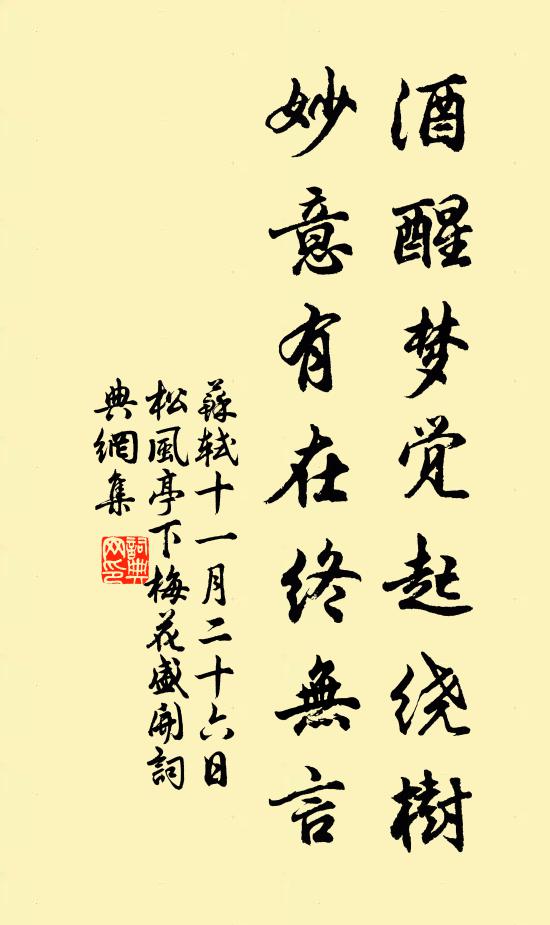 酒醒梦觉起绕樹
妙意有在终無言
蘇軾十一月二十六日
松風亭下梅花盛開詞
典網集
詞典
网印